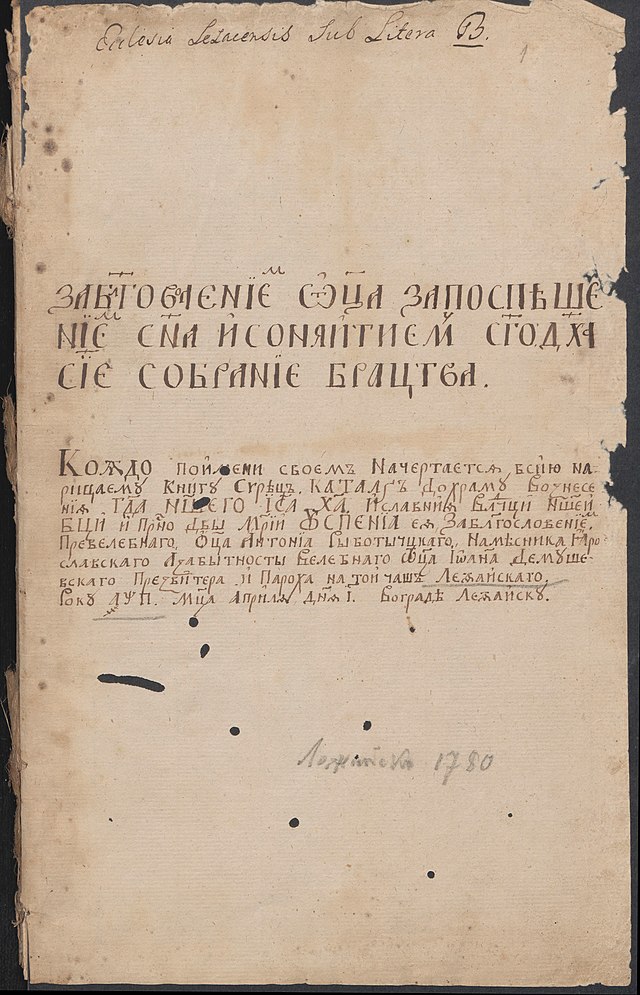 Eclesia Lezacensis Sub Litera B.
1
ЗАБЛ҃ГОСЛВЕНІЕМ Ѿ҃ЦА ЗАПОСПѢШЕ
НІЕМ С҃НА И СОНЯИТИЕМ С҃ТГО Д҃ХА
СІЕ СОБРАНІЕ БРАЦТВА.
КОЖДО поймени своемъ Начертается всію на-
рицаему Книгу Сирѣцъ, КАТАЛѠГЪ До храму Вознесе
нія Г҃ДА Н҃ШЕГО ІС҃А Х҃А, Й славния Вл҃дци Н҃шей
Б҃ЦИ и Пр҃но Д҃вы М҃рїи ѸСПЕНІА ея, Заблагословеніем
Превелебнаго, Ѿ҃ца Антонїа Рыботыцкаго, Намѣсника Яро-
славскаго Азабытности Велебнаго Ѿ҃ца Іѡанна Демуше-
вскаго Презвитера и Пароха на той часъ Лежайскаго,
Року АѰП. М҃ца Априля Дня І. Воградѣ Лежайску.
1780